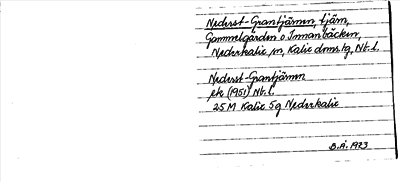 Nederst-Grantjärnen, tjärn,
Gammelgården o. Innanbäcken,
Nederkalix sn, Kalix dms.tg, Nb. l.
Nederst-Grantjärnen
ek (1951) Nb. l.
25 M Kalix 5g Nederkalix
B.Å. 1973